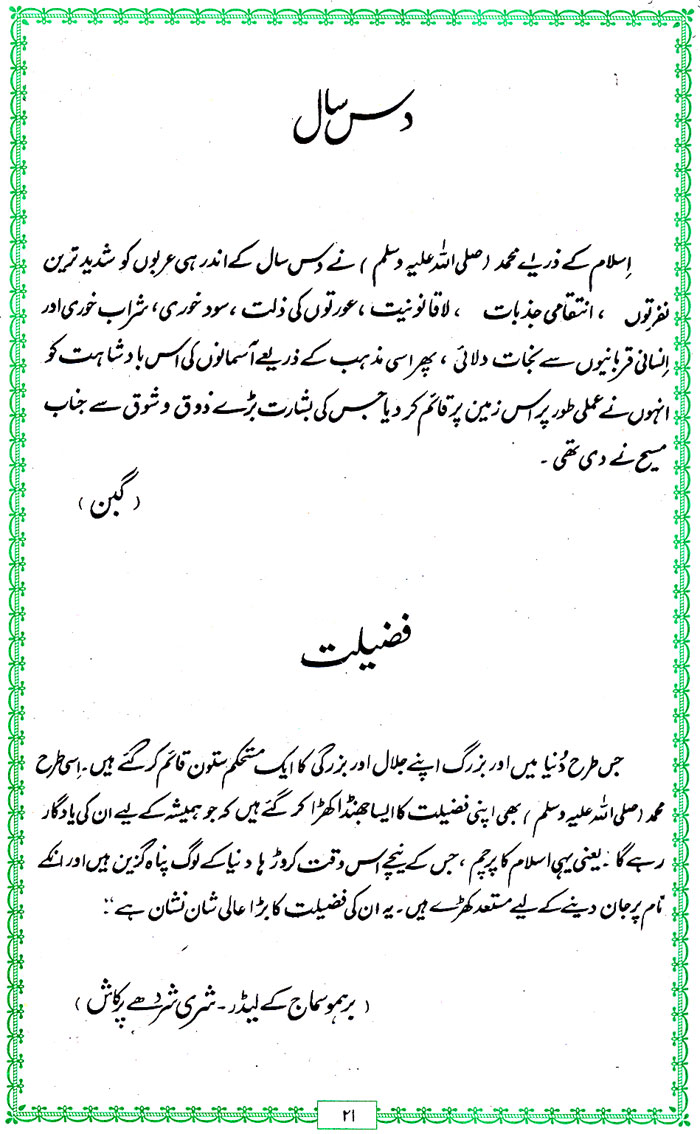 دس سال
اِسلام کے ذریعے محمد (صلی اللہ علیہ وسلم) نے دس سال کے اندر ہی عربوں کو شدید ترین
نفرتوں ، انتقامی جذبات ، لاقانونیت ، عورتوں کی ذلت ، سود خوری ، شراب خوری اور
اِنسانی قربانیوں سے نجات دلائی ، پھر اسی مذہب کے ذریعے آسمانوں کی اس بادشاہت کو
انہوں نے عملی طور پر اس زمین پر قائم کر دیا جس کی بشارت بڑے ذوق و شوق سے جناب
مسیح نے دی تھی ۔
(گبن)
فضیلت
جس طرح دُنیا میں اور بزرگ اپنے جلال اور بزرگی کا ایک مستحکم ستون قائم کر گئے ہیں ۔ اِسی طرح
محمد (صلی اللہ علیہ وسلم) بھی اپنی فضیلت کا ایسا جھنڈا کھڑا کر گئے ہیں کہ جو ہمیشہ کے لیے ان کی یادگار
رہے گا ۔ یعنی یہی اسلام کا پرچم ، جس کے نیچے اس وقت کروڑ ہا دنیا کے لوگ پناہ گزین ہیں اور انکے
نام پر جان دینے کے لیے مستعد کھڑے ہیں ۔ یہ ان کی فضیلت کا بڑا عالی شان نشان ہے“۔
(برہمو سماج کے لیڈر ۔ شری شردھے پرکاش)
۲۱